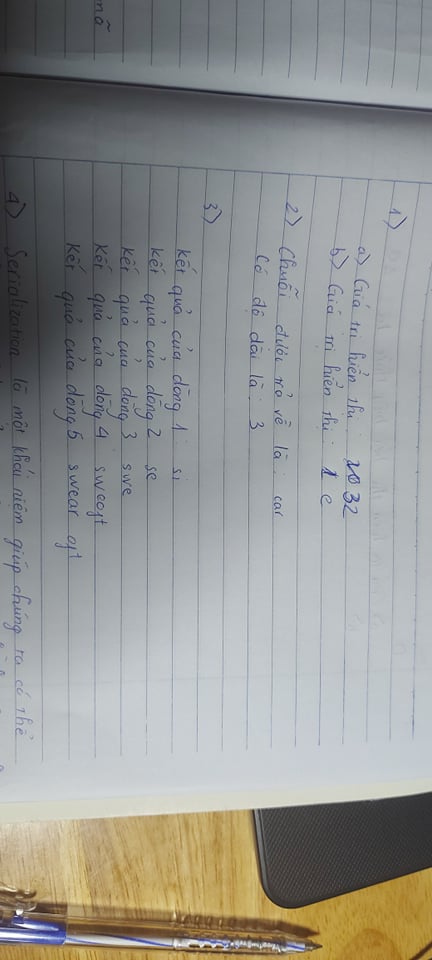 1)
a) Giá trị hiển thị : 32
b) Giá trị hiển thị : e
2) Chuỗi được trả về là : car
Có độ dài là : 3
3)
Kết quả của dòng 1 : si
Kết quả của dòng 2 se
Kết quả của dòng 3 swe
Kết quả của dòng 4 sweoft
Kết quả của dòng 5 swear oft
mã
4) Serialization là một khái niệm giúp chúng ta có thể